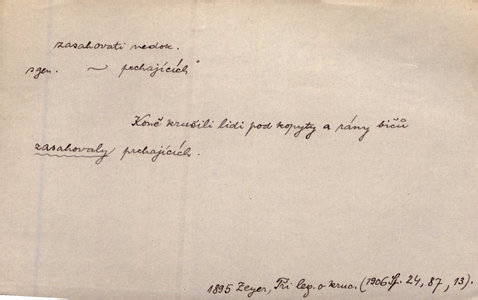 zasahovati nedok.
s gen. ~ prchajících
Koně krušili lidi pod kopyty a rány bičů
zasahovaly prchajících.
1895 Zeyer, Tři leg. o kruc. (1906 Sp. 24, 87, 13).